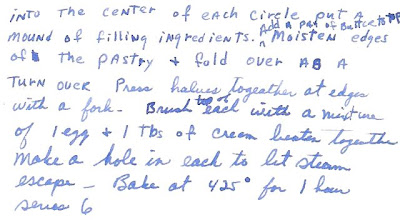 INTO THE CENTER of EACH CIRCLE PUT A
MOUND of filling ingredients. Add a pat of Butter to top MOISTEN edges
of THE PASTRY & fold over AS A
TURN OVER Press halves togeather at edges
with a fork - Brush top of each with a mixture
of 1 egg & 1 Tbs of cream beaten togeather
Make a hole in each to let steam
escape - Bake at 425° for 1 hour
series 6